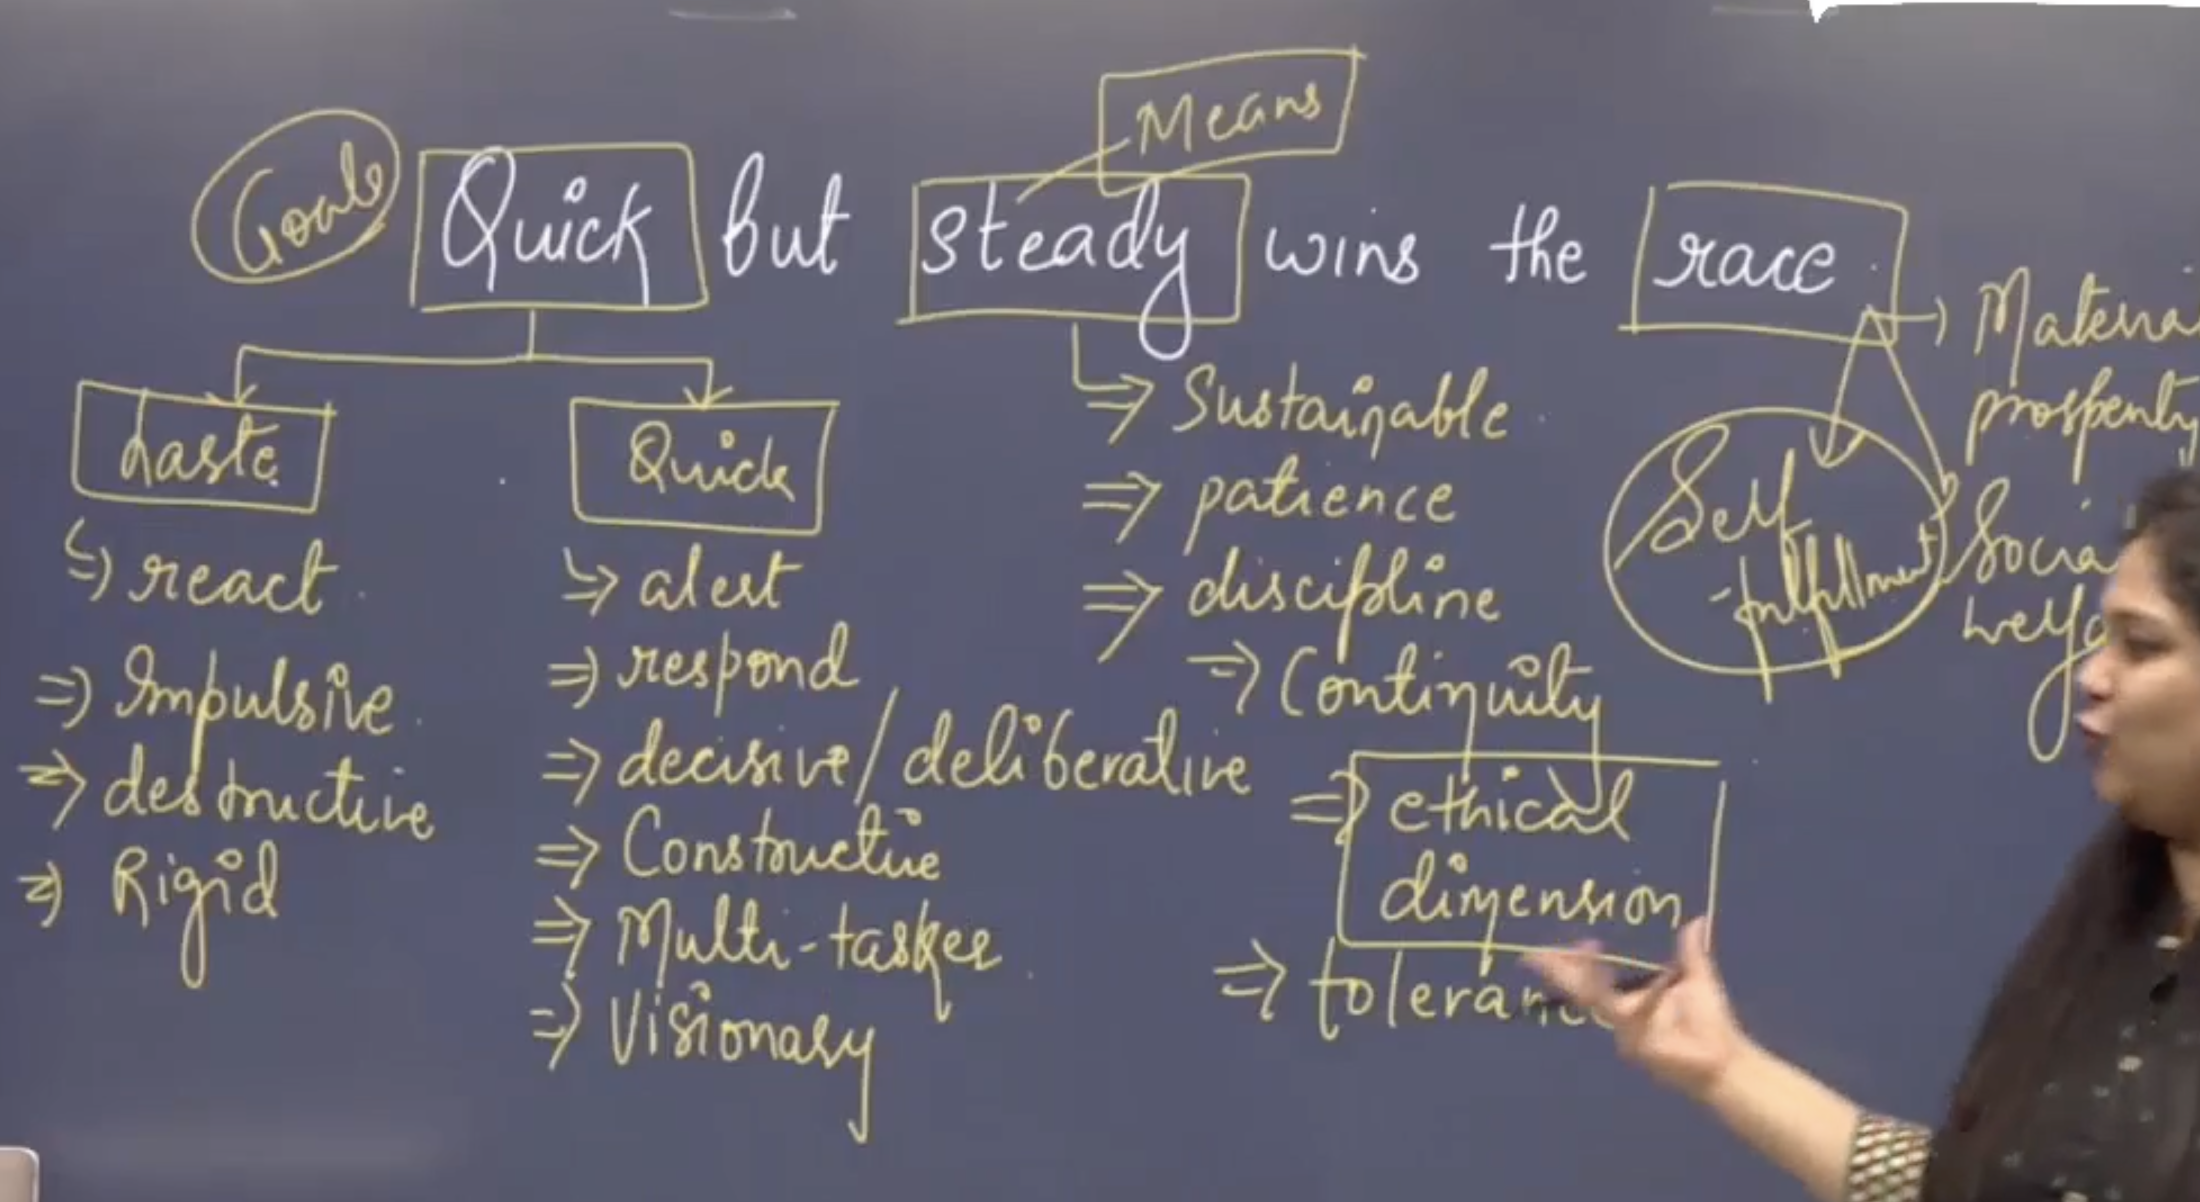 Means
Goals
Quick but steady wins the race
haste
react
Impulsive
destructive
Rigid
Quick
alert
respond
decisive/deliberative
Constructive
Multi-tasker
Visionary
Sustainable
patience
discipline
Continuity
ethical
dimension
Material
prosperity
Self
-fulfillment
Social